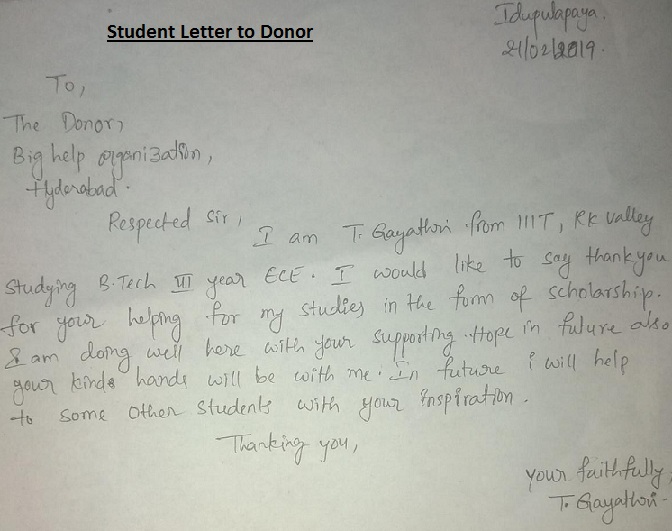 Student Letter to Donor
Idupulapaya.
21/02/2019.
To,
The Donor,
Big help organization,
Hyderabad.
Respected Sir,
I am T. Gayathri from IIIT, RK Valley
Studying B.Tech III year ECE. I would like to say thank you
for your helping for my studies in the form of scholarship.
I am doing well here with your supporting. Hope in future also
your kinds hands will be with me. In future i will help
to some other students with your inspiration.
Thanking you,
your faithfully,
T. Gayathri.